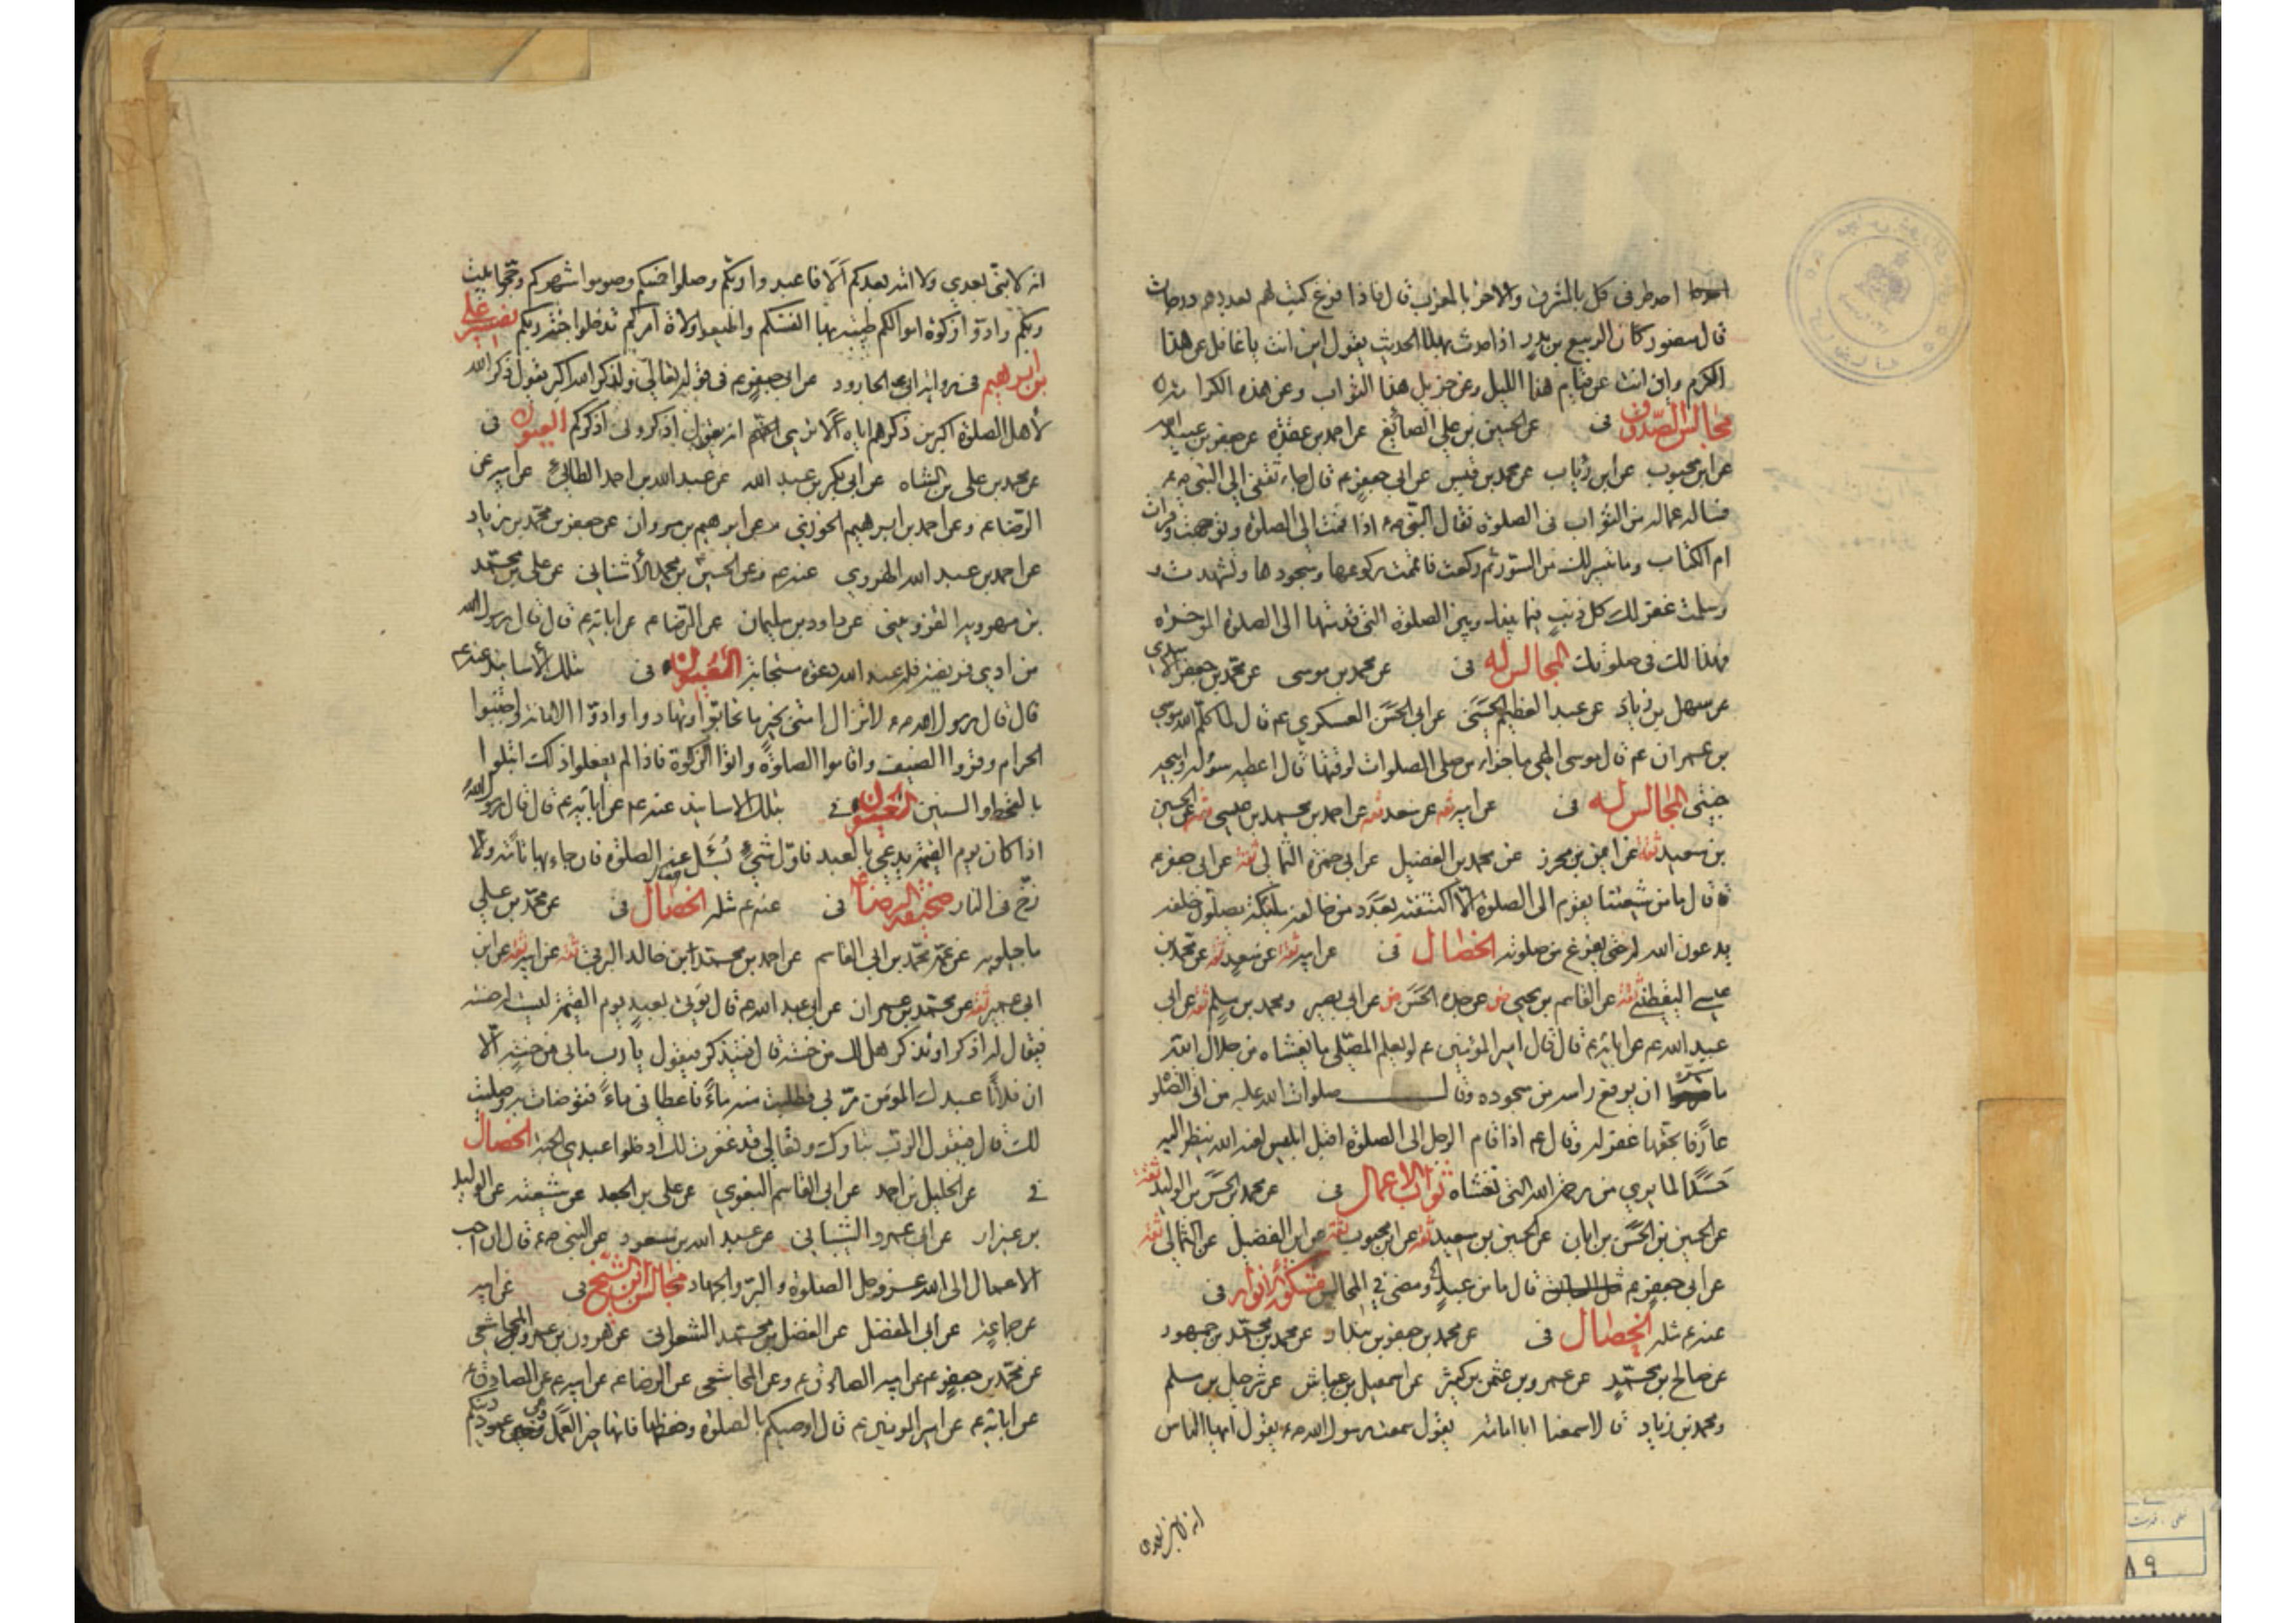 احدهما احدطرفى كل بالمشرق والاخر بالمغرب قال فاذا فرغ كتب لهم بعددهم درجات
قال منصور كان الربيع بن بدر اذا حدث بهذا الحديث يقول اين انت يا غافل عن هذا
الكرم واين انت عن قيام هذا الليل وعن جزيل هذا الثواب وعن هذه الكرامة
مجالس الصدوق فى عن الحسين بن على الصائغ عن احمد بن عقدة عن جعفر بن عبيد الله
عن ابن محبوب عن ابن رئاب عن محمد بن قيس عن ابى جعفر ع قال جاء ثقفى الى النبى ص
فساله عماله من الثواب فى الصلوة فقال النبى ص اذا قمت الى الصلوة وتوجهت وقرات
ام الكتاب وما تيسر لك من السور ثم ركعت فاتممت ركوعها وسجودها وتشهدت
وسلمت غفر لك كل ذنب فيما بينك وبين الصلوة التى قدمتها الى الصلوة المؤخرة
فهذا لك فى صلوتك المجالس له فى عن محمد بن موسى عن محمد بن جعفر الاسدى
عن سهل بن زياد عن عبد العظيم الحسنى عن ابى الحسن العسكرى ع قال لما كلم الله موسى
بن عمران ع قال موسى الهى ما جزاء من صلى الصلوات لوقتها قال اعطيه سؤله وابيحه
جنتى المجالس له فى عن ابيه ثقه عن سعد ثقه عن احمد بن محمد بن عيسى ثقه عن الحسين
بن سعيد ثقه عن ايمن بن محرز عن محمد بن الفضيل عن ابى حمزة الثمالى ثقه عن ابى جعفر ع
قال ما من شيعتنا يقوم الى الصلوة الا اكتنفته بعدد من خالفه ملائكة يصلون خلفه
يدعون الله له حتى يفرغ من صلوته الخصال فى عن ابيه ثقه عن سعد ثقه عن محمد بن
عيسى اليقطينى ثقه عن القاسم بن يحيى عن جده الحسن عن ابى بصير ومحمد بن مسلم ثقه عن ابى
عبد الله ع عن ابائه ع قال قال امير المؤمنين ع لو يعلم المصلى ما يغشاه من جلال الله
ما سره ان يرفع راسه من سجوده وقال صلوات الله عليه من اتى الصلو
عارفا بحقها غفر له وقال ع اذا قام الرجل الى الصلوة اقبل ابليس لعنه الله ينظر اليه
حسدا لما يرى من رحمة الله التى تغشاه ثواب الاعمال فى عن محمد بن الحسن بن الوليد ثقة
عن الحسين بن الحسن بن ابان عن الحسين بن سعيد ثقه عن ابن محبوب ثقه عن ابن الفضيل عن الثمالى ثقه
عن ابى جعفر ع قال ما من عبد ومضى فى المجالس مشكوة الانوار فى
عنه ع مثله الخصال فى عن محمد بن جعفر بن بندار عن محمد بن محمد بن جمهور
عن صالح بن محمد عن عمرو بن عثمن بن كثير عن اسمعيل بن عياش عن شرحبيل بن مسلم
ومحمد بن زياد قالا سمعنا ابا امامة يقول سمعت رسول الله ص يقول ايها الناس
انه لا نبى بعدى
انه لا نبى بعدى ولا امة بعدكم ألا فاعبدوا ربكم وصلوا خمسكم وصوموا شهركم وحجوا بيت
ربكم وادوا زكوة اموالكم طيبة بها انفسكم واطيعوا ولاة امركم تدخلوا جنة ربكم تفسير على
بن ابرهيم فى رواية ابى الجارود عن ابى جعفر ع فى قوله تعالى ولذكر الله اكبر يقول ذكر الله
لأهل الصلوة اكبر من ذكرهم اياه ألا ترى انه يقول اذكرونى اذكركم العيون فى
عن محمد بن على بن الشاه عن ابى بكر بن عبد الله عن عبد الله بن احمد الطائى عن ابيه عن
الرضا ع وعن احمد بن ابرهيم الخوزى عن ابرهيم بن مروان عن جعفر بن محمد بن زياد
عن احمد بن عبد الله الهروى عنه ع وعن الحسين بن محمد الأشنانى عن على بن محمد
بن مهرويه القزوينى عن داود بن سليمان عن الرضا ع عن ابائه ع قال قال رسول الله
من ادى فريضة فله عند الله دعوة مستجابة العيون فى بتلك الأسانيد عنه ع
قال قال رسول الله ص لا تزال امتى بخير ما تحابوا وتهادوا وادوا الامانة واجتنبوا
الحرام وقروا الضيف واقاموا الصلوة واتوا الزكوة فاذا لم يفعلوا ذلك ابتلوا
بالقحط والسنين العيون فى بتلك الاسانيد عنه ع عن ابائه ع قال قال رسول الله
اذا كان يوم القيمة يدعى بالعبد فاول شىء يسئل عنه الصلوة فان جاء بها تامة والا
زخ فى النار صحيفه الرضا ع فى عنه ع مثله الخصال فى عن محمد بن على
ماجيلويه عن عمه محمد بن ابى القاسم عن احمد بن محمد ابن خالد البرقى ثقه عن ابيه ثقه عن ابن
ابى عمير ثقه عن محمد بن عمران عن ابى عبد الله ع قال يؤتى بعبد يوم القيمة ليست له حسنة
فيقال له اذكر او تذكر هل لك من حسنة قال فيتذكر فيقول يا رب مالى من حسنة الا
ان فلانا عبدك المؤمن مر بى فطلبت منه ماء فاعطانى ماء فتوضات به وصليت
لك قال فيقول الرب تبارك وتعالى قد غفرت لك ادخلوا عبدى الجنة الخصال
فى عن الخليل بن احمد عن ابى القاسم البغوى عن على بن الجعد عن شعبة عن الوليد
بن عيزار عن ابى عمرو الشيبانى عن عبد الله بن مسعود عن النبى ص قال ان احب
الاعمال الى الله عز وجل الصلوة والبر والجهاد مجالس ابن الشيخ فى عن ابيه
عن جماعة عن ابى المفضل عن الفضل بن محمد الشعرانى عن هرون بن عمرو المجاشعى
عن محمد بن جعفر ع عن ابيه الصادق ع وعن المجاشعى عن الرضا ع عن ابيه ع عن الصادق ع
عن ابائه ع عن امير المؤمنين ع قال اوصيكم بالصلوة وحفظها فانها خير العمل وهى عمود دينكم